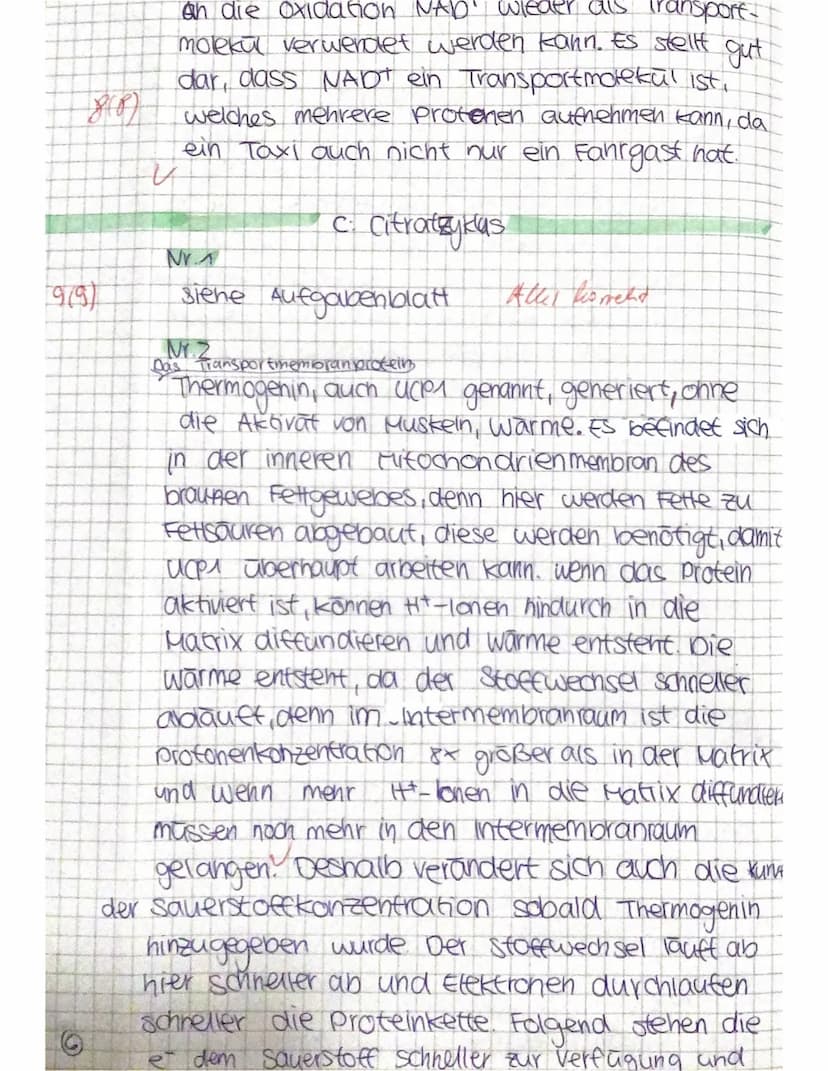 an die Oxidation NAD⁺ wieder als Transport-
molekül verwendet werden kann. Es stellt gut
dar, dass NAD⁺ ein Transportmolekül ist,
8(8) welches mehrere Protonen aufnehmen kann, da
ein Taxi auch nicht nur ein Fahrgast hat.
C: Citratzyklus
Nr. 1
9(9) siehe Aufgabenblatt Alles korrekt
Nr. 2
Das Transportmembranprotein
Thermogenin, auch UCP1 genannt, generiert, ohne
die Aktivät von Muskeln, Wärme. Es befindet sich
in der inneren Mitochondrienmembran des
braunen Fettgewebes, denn hier werden Fette zu
Fettsäuren abgebaut, diese werden benötigt, damit
UCP1 überhaupt arbeiten kann. Wenn das Protein
aktiviert ist, können H⁺-Ionen hindurch in die
Matrix diffundieren und Wärme entsteht. Die
Wärme entsteht, da der Stoffwechsel schneller
abläuft, denn im Intermembranraum ist die
Protonenkonzentration 8x größer als in der Matrix
und wenn mehr H⁺-Ionen in die Matrix diffundieren
müssen noch mehr in den Intermembranraum
gelangen. Deshalb verändert sich auch die
der Sauerstoffkonzentration sobald Thermogenin
hinzugegeben wurde. Der Stoffwechsel läuft ab
hier schneller ab und Elektronen durchlaufen
schneller die Proteinkette. Folgend stehen die
6 e⁻ dem Sauerstoff schneller zur Verfügung und